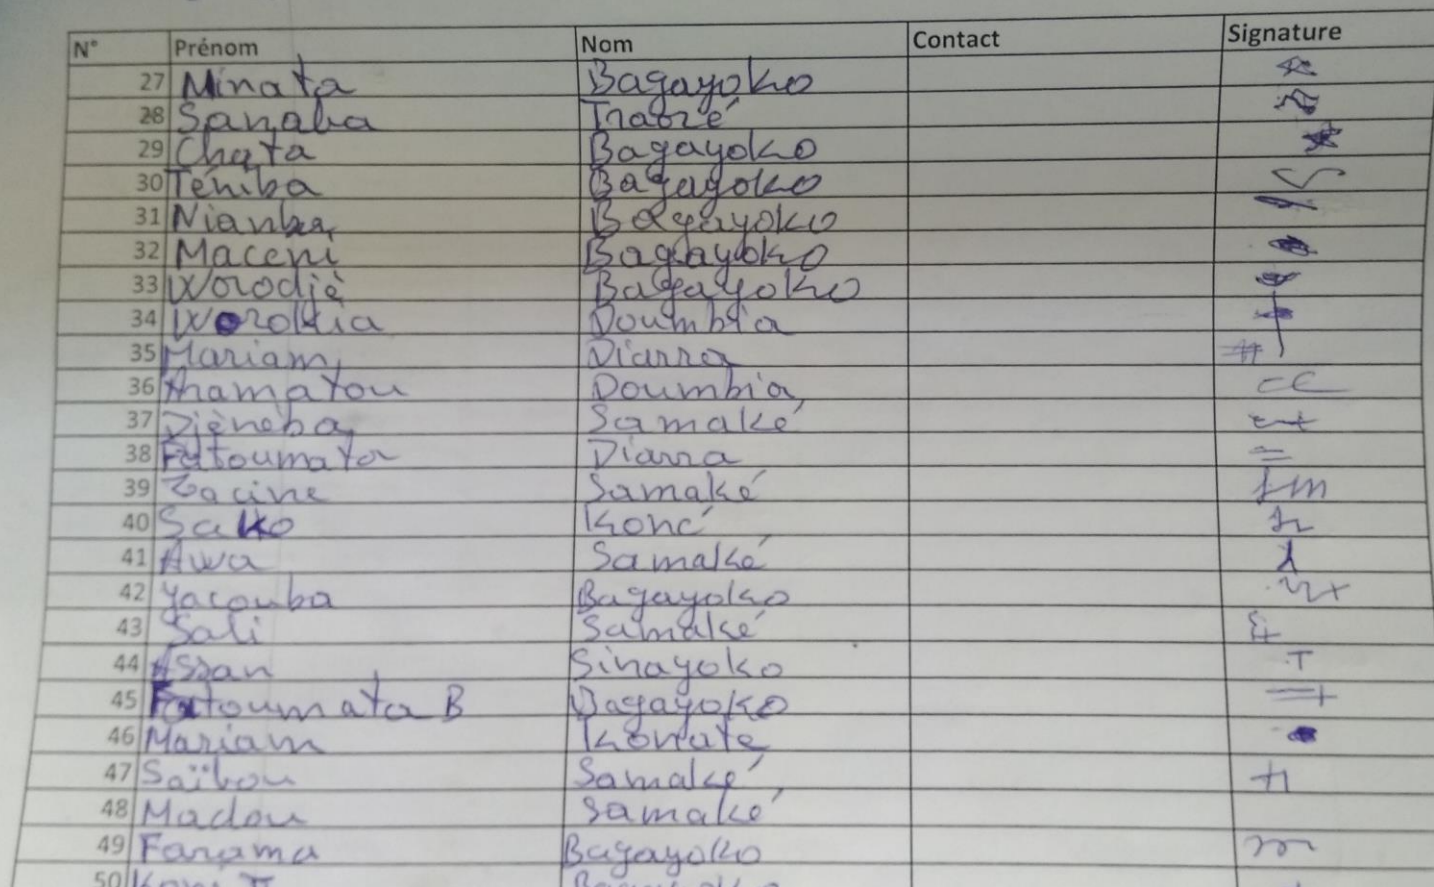 N° Prénom Nom Contact Signature
27 Minata Bagayoko
28 Sanaba Traoré
29 Chata Bagayoko
30 Téniba Bagayoko
31 Nianba Bagayoko
32 Maceni Bagayoko
33 Worodjè Bagayoko
34 Worokia Doumbia
35 Mariam Diarra
36 Aramatou Doumbia
37 Djènèba Samaké
38 Fatoumata Diarra
39 Zacine Samaké
40 Sako Koné
41 Awa Samaké
42 Yacouba Bagayoko
43 Sali Samaké
44 Assan Sinayoko
45 Fatoumata B Bagayoko
46 Mariam Konate
47 Saïbou Samaké
48 Madou Samaké
49 Farama Bagayoko
50